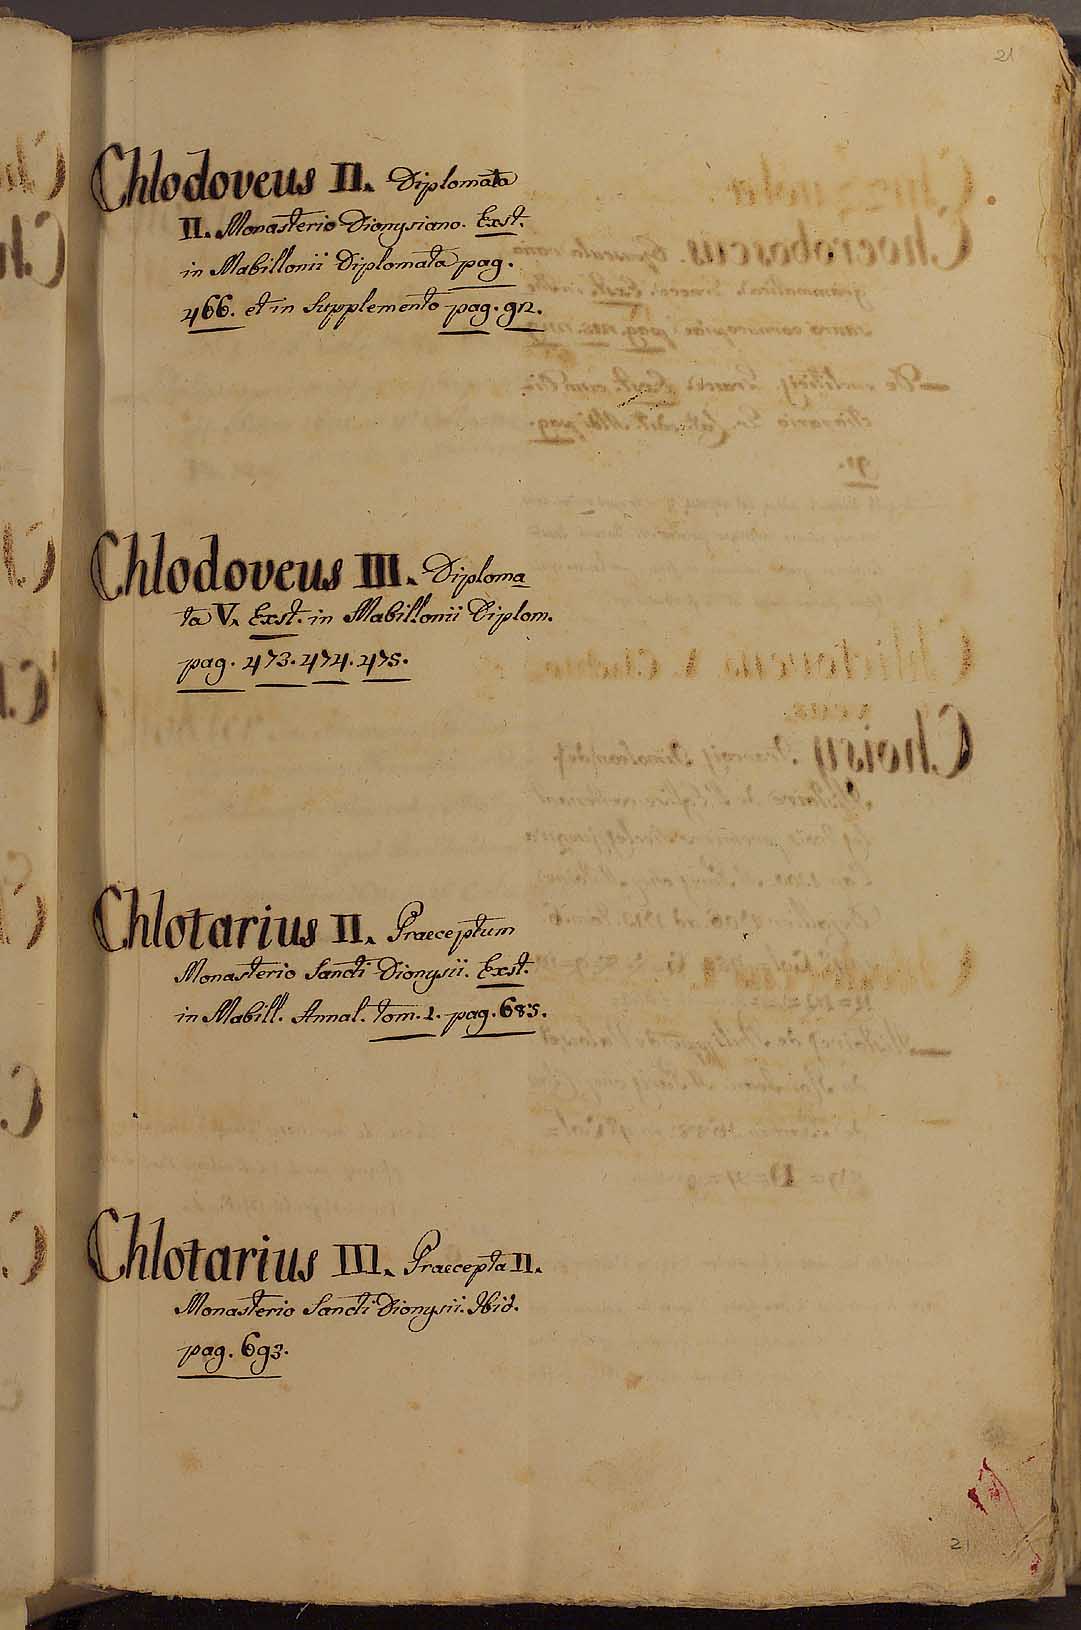 21
Chlodoveus II. Diplomata
II. Monasterio Dionysiano. Exst.
in Mabillonii Diplomata pag.
466. et in Supplemento pag. 92.
Chlodoveus III. Diploma
ta V. Exst. in Mabillonii Diplom.
pag. 473. 474. 475.
Chlotarius II. Praeceptum
Monasterio Sancti Dionysii. Exst.
in Mabill. Annal. tom. 1. pag. 685.
Chlotarius III. Praecepta II.
Monasterio Sancti Dionysii. Ibid.
pag. 693.
21